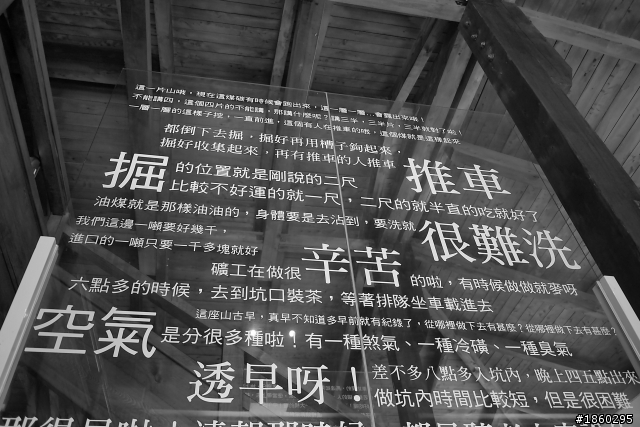 這一片山哦，現在這煤礦有時候會跑出來，這一層一層，會露出來哦！
不能講四，這個四片的不能講，那講什麼呢？講三半，三半片，三半就對了啦！
一層一層的這樣子挖，一直前進，這個有人在推車的哦，這個煤就是這樣起來
都倒下去掘，掘好再用槽子鉤起來，
掘好收集起來，再有推車的人推車
掘 的位置就是剛說的二尺 推車
比較不好運的就一尺，二尺的就半直的吃就好了
油煤就是那樣油油的，身體要是去沾到，要洗就 很難洗
我們這邊一噸要好幾千，
進口的一噸只要一千多塊就好
礦工在做很 辛苦 的啦，有時候做做就麥呀
六點多的時候，去到坑口裝茶，等著排隊坐車載進去
這座山古早，真早不知道多早前就有紀錄了，從哪裡做下去有甚麼？從哪裡做下去有甚麼？
空氣 是分很多種啦！有一種煞氣、一種冷礦、一種臭氣
透早呀！ 差不多八點多人坑內，晚上四五點出來
做坑內時間比較短，但是很困難
#1860295